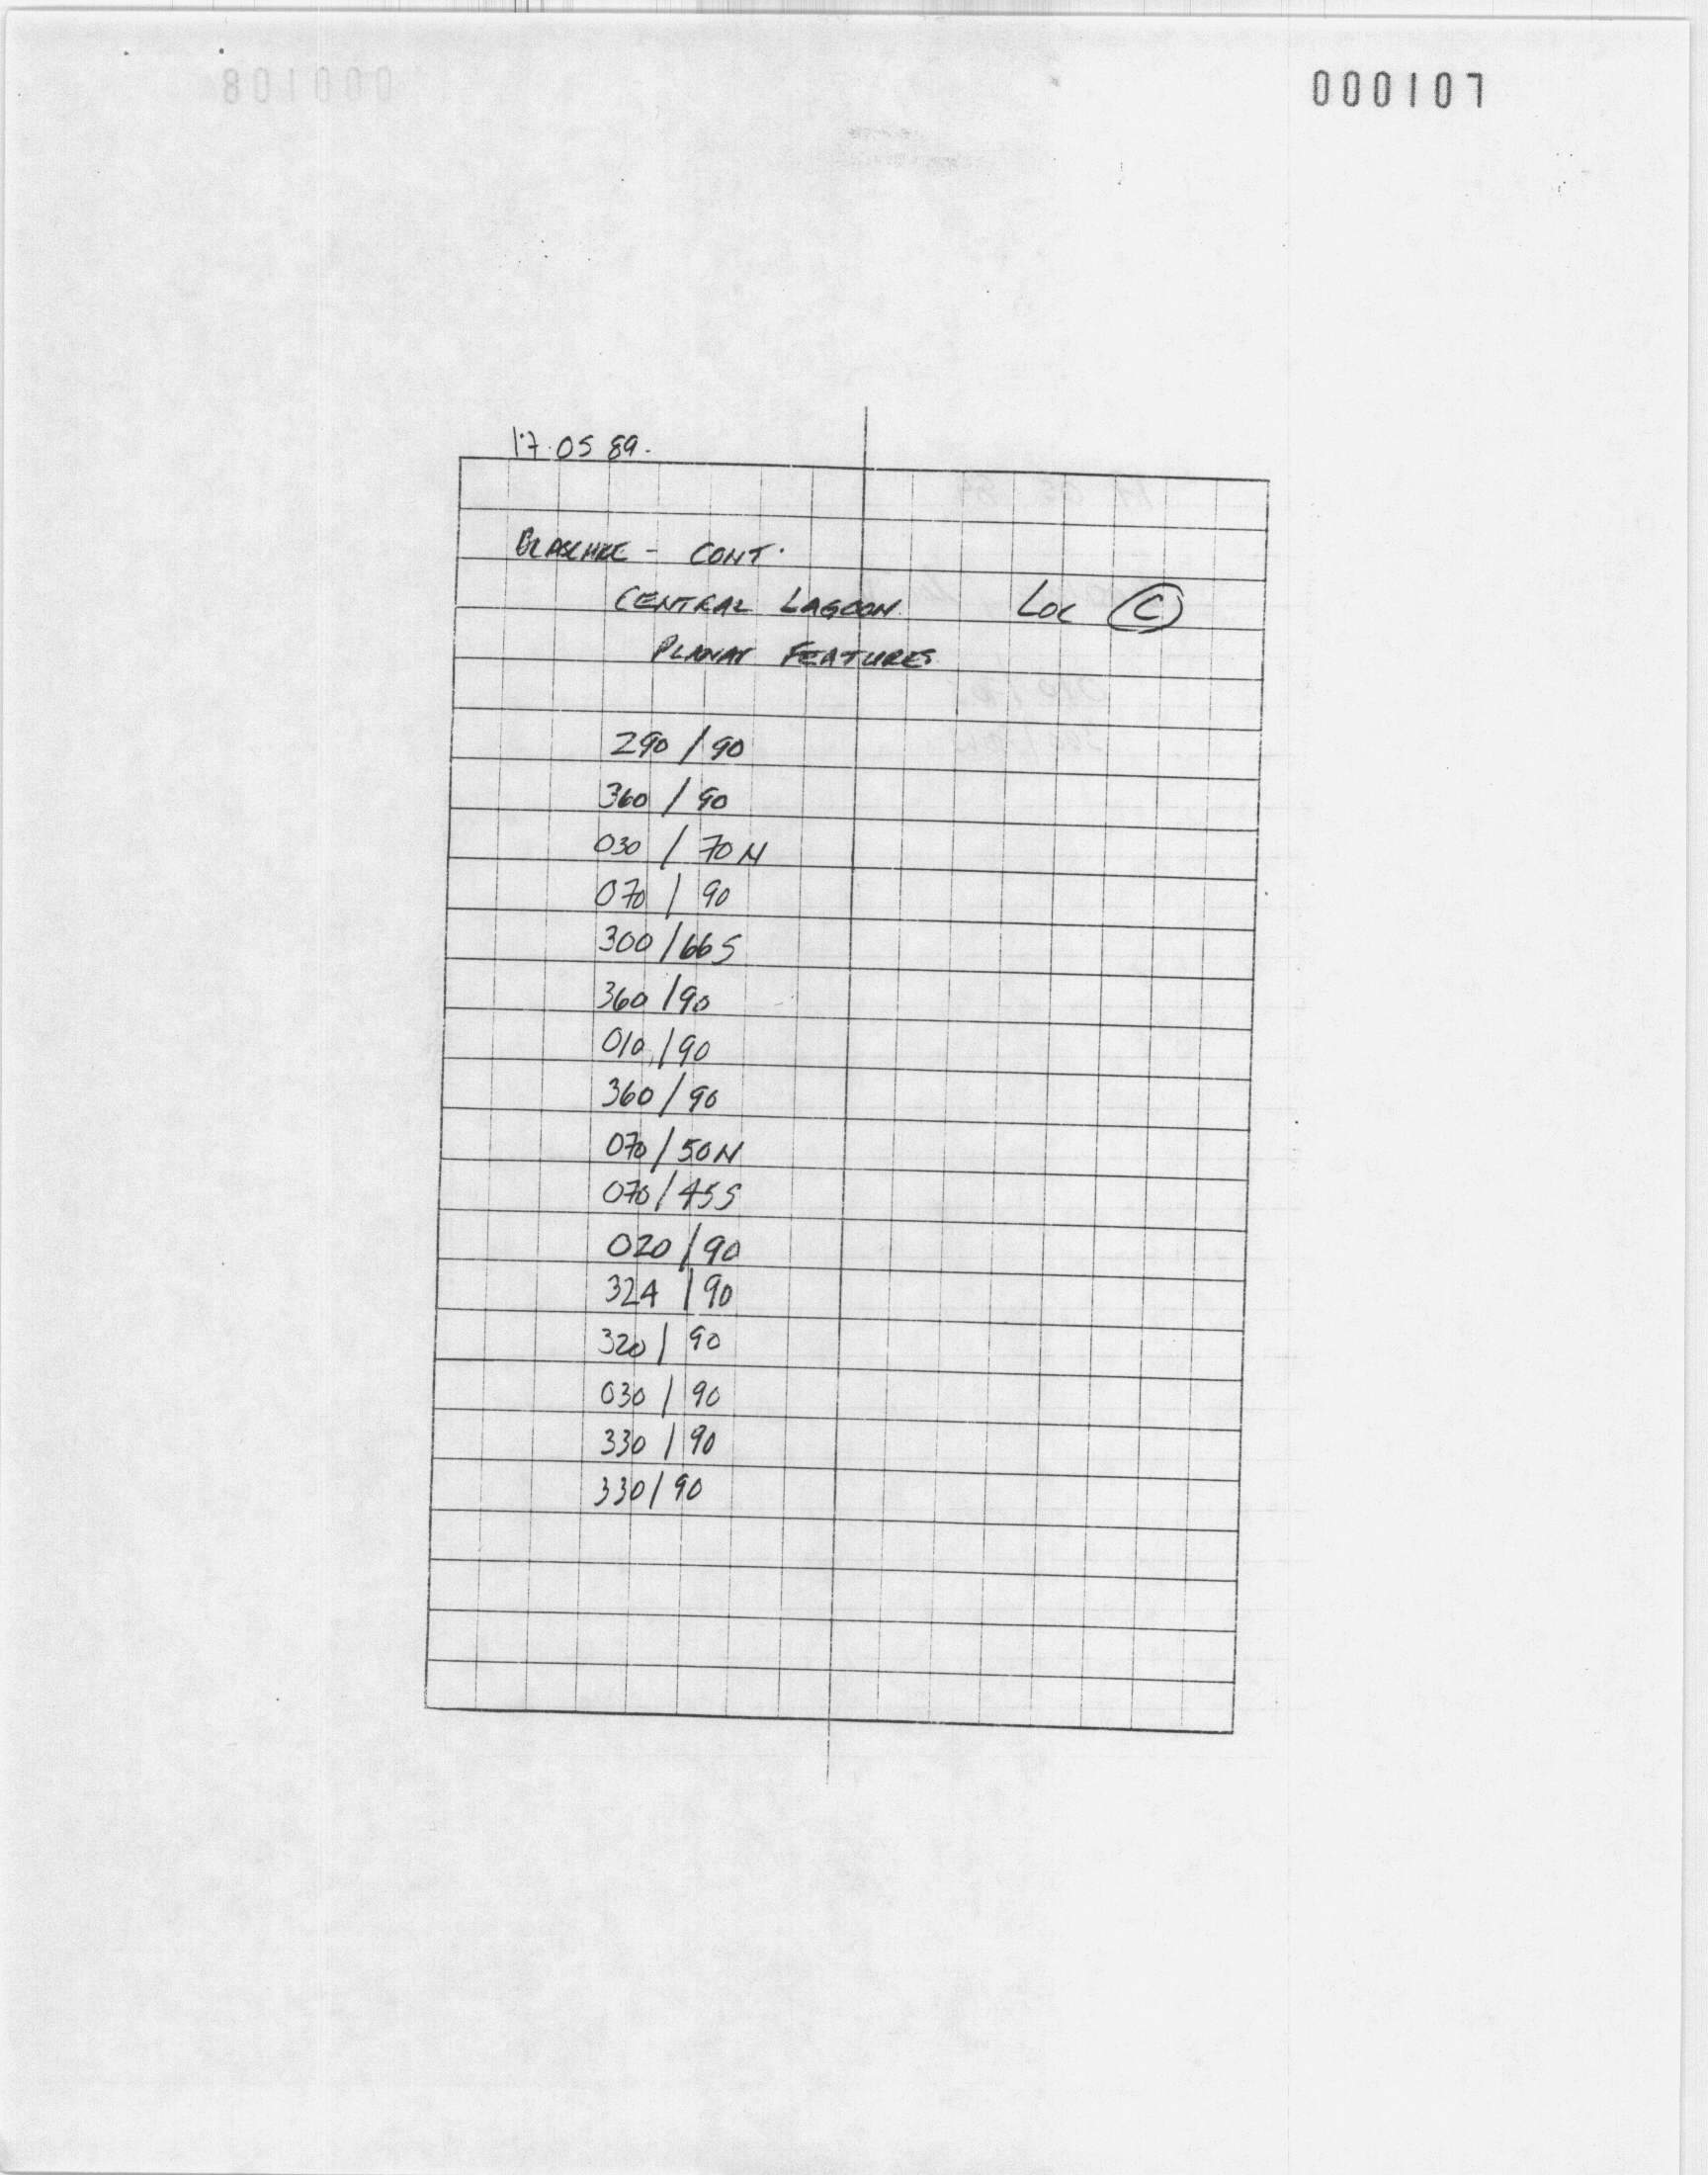 000107
17.05 89.
BLASCHKE - CONT.
CENTRAL LAGOON LOC C
PLANAR FEATURES
290/90
360/90
030/70N
070/90
300/66S
360/90
010/90
360/90
070/50N
070/45S
020/90
324/90
320/90
030/90
330/90
330/90